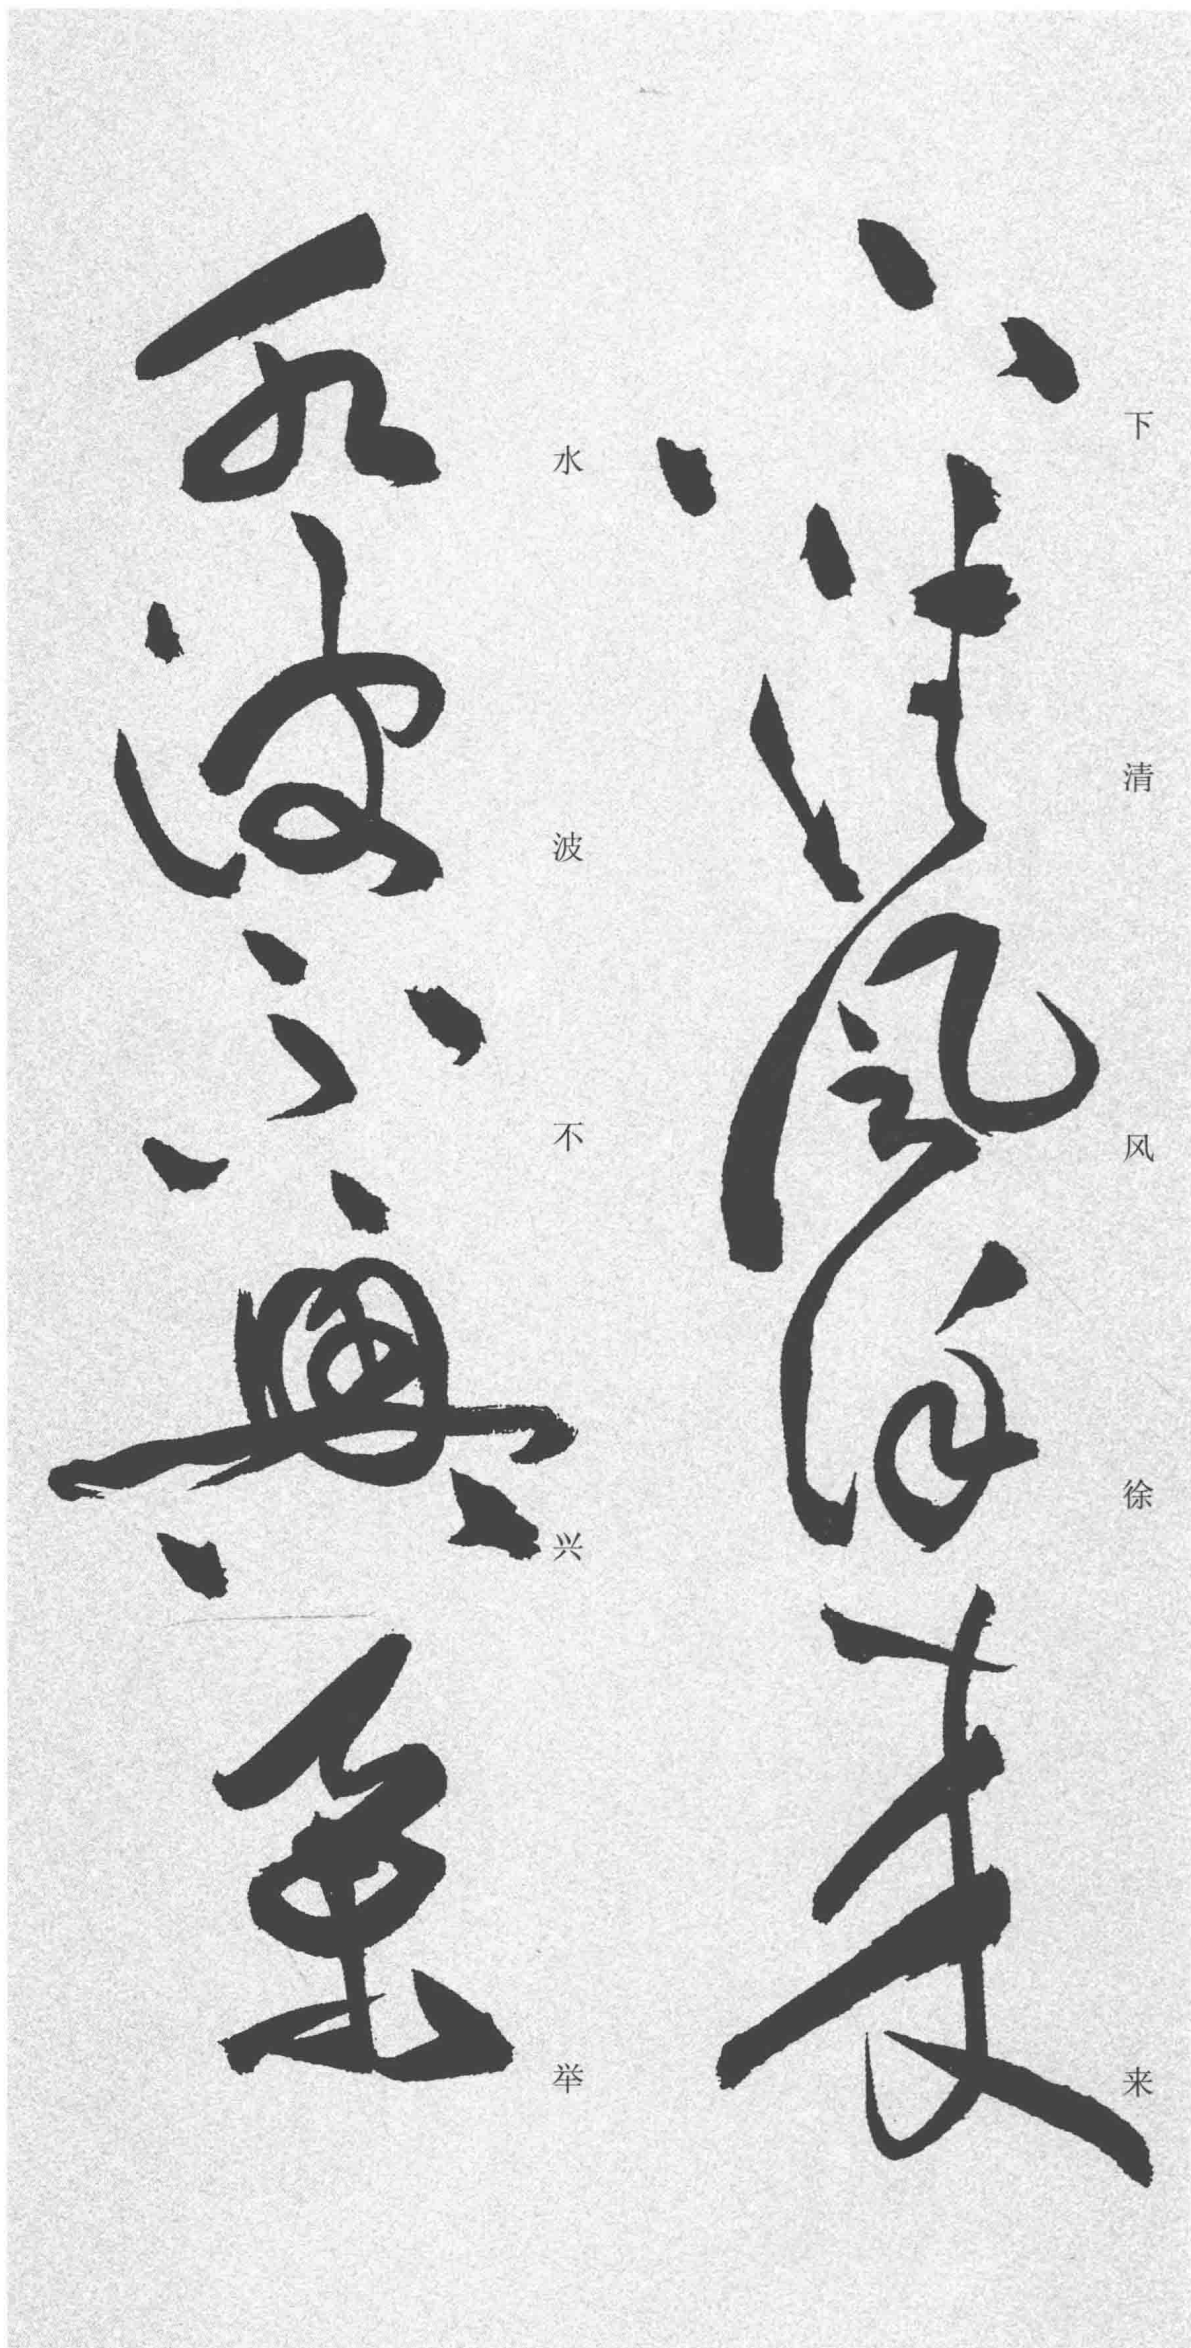 下清风徐来
水波不兴举